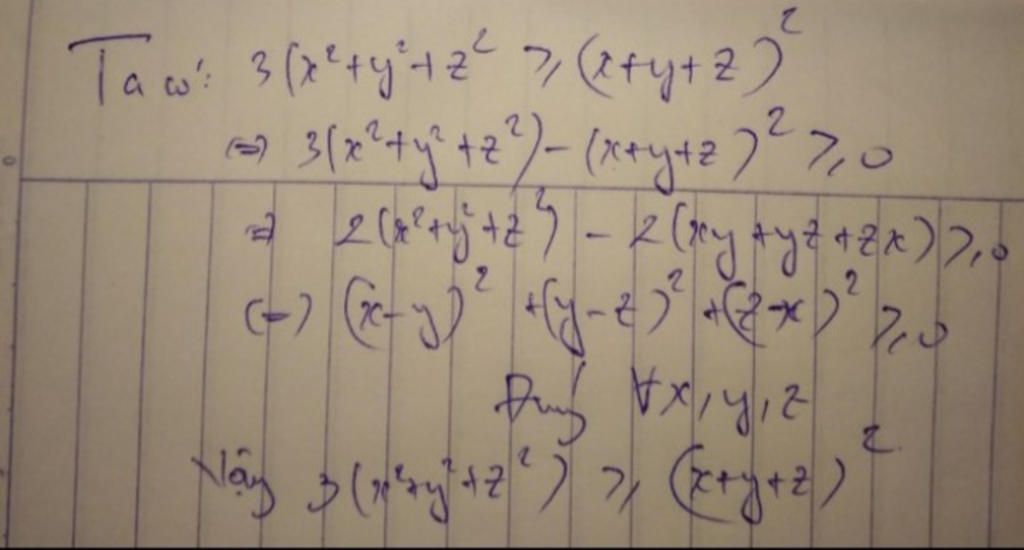 Ta có: 3(x²+y²+z² ≥ (x+y+z)²
⇔ 3(x²+y²+z²) - (x+y+z)² ≥ 0
⇔ 2(x²+y²+z²) - 2(xy+yz+zx) ≥ 0
⇔ (x-y)² + (y-z)² + (z-x)² ≥ 0
Đúng ∀x,y,z
Vậy 3(x²+y²+z²) ≥ (x+y+z)²